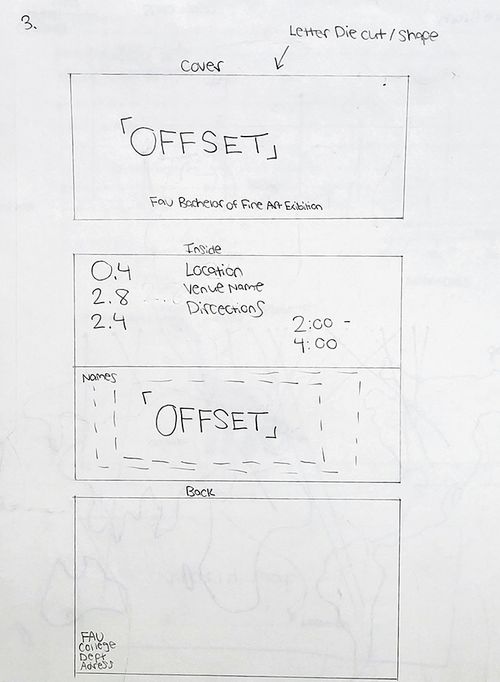 3.
Letter Die cut / Shape
Cover
「OFFSET」
FAU Bachelor of Fine Art Exibition
Inside
0.4 Location
2.8 .... Venue Name
2.4 Directions
2:00 -
4:00
Names
「OFFSET」
Back
FAU
College
Dept
Adress